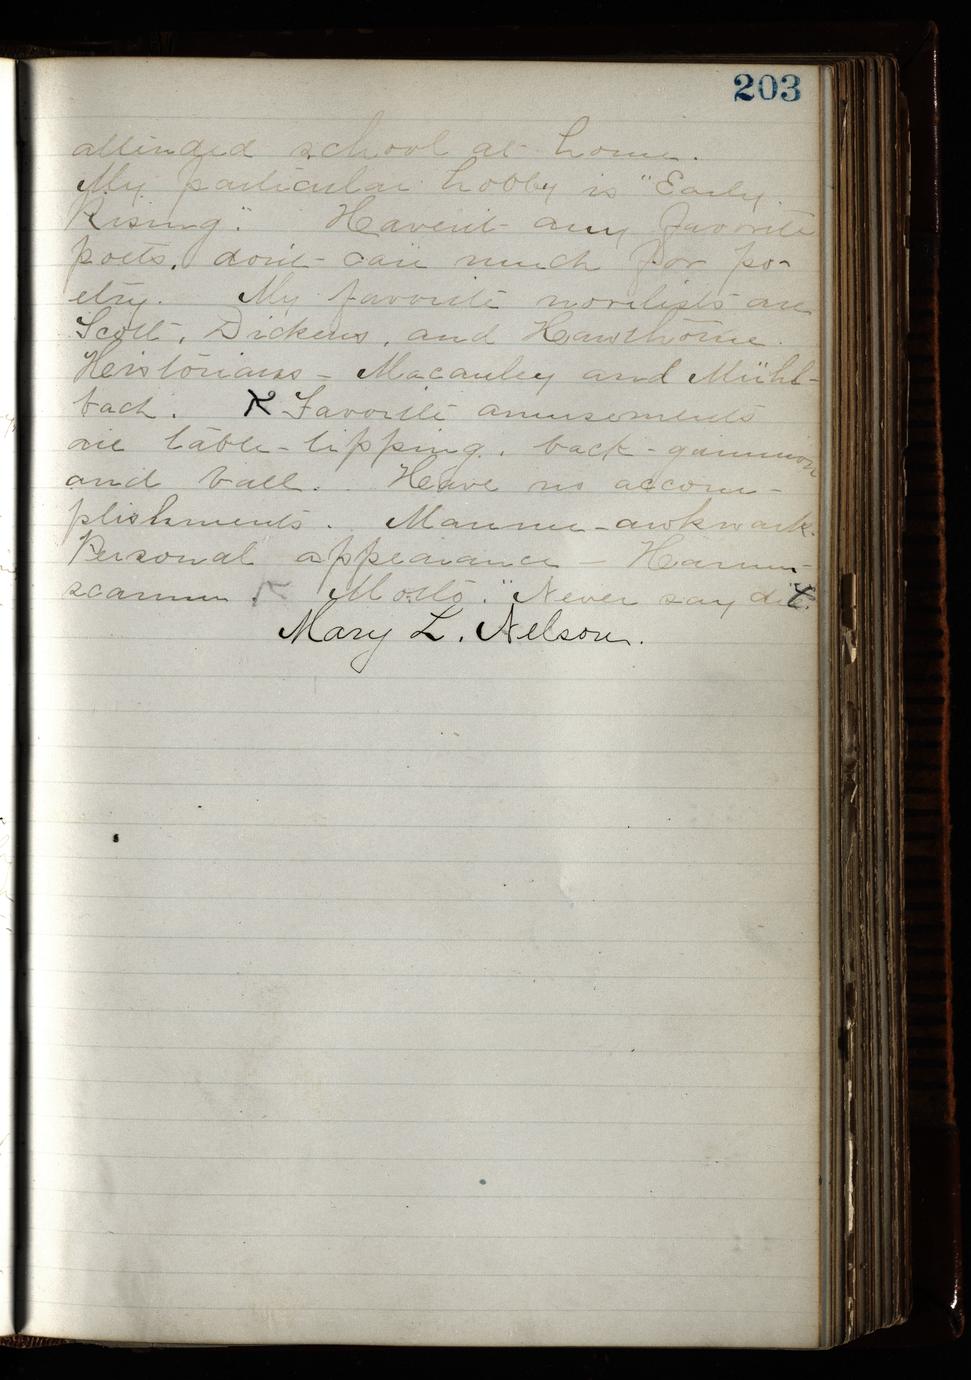 203
attended school at home.
My particular hobby is "Early
Rising". Haven't any favorite
poets, don't care much for po-
etry. My favorite novelists are
Scott, Dickens, and Hawthorne.
Historians - Macauley and Mühl-
bach. Favorite amusements
are table-tipping, back-gammon
and ball. Have no accom-
plishments. Manner - awkward.
Personal appearance - Harum-
scarum. Motto. "Never say die
Mary L. Nelson.